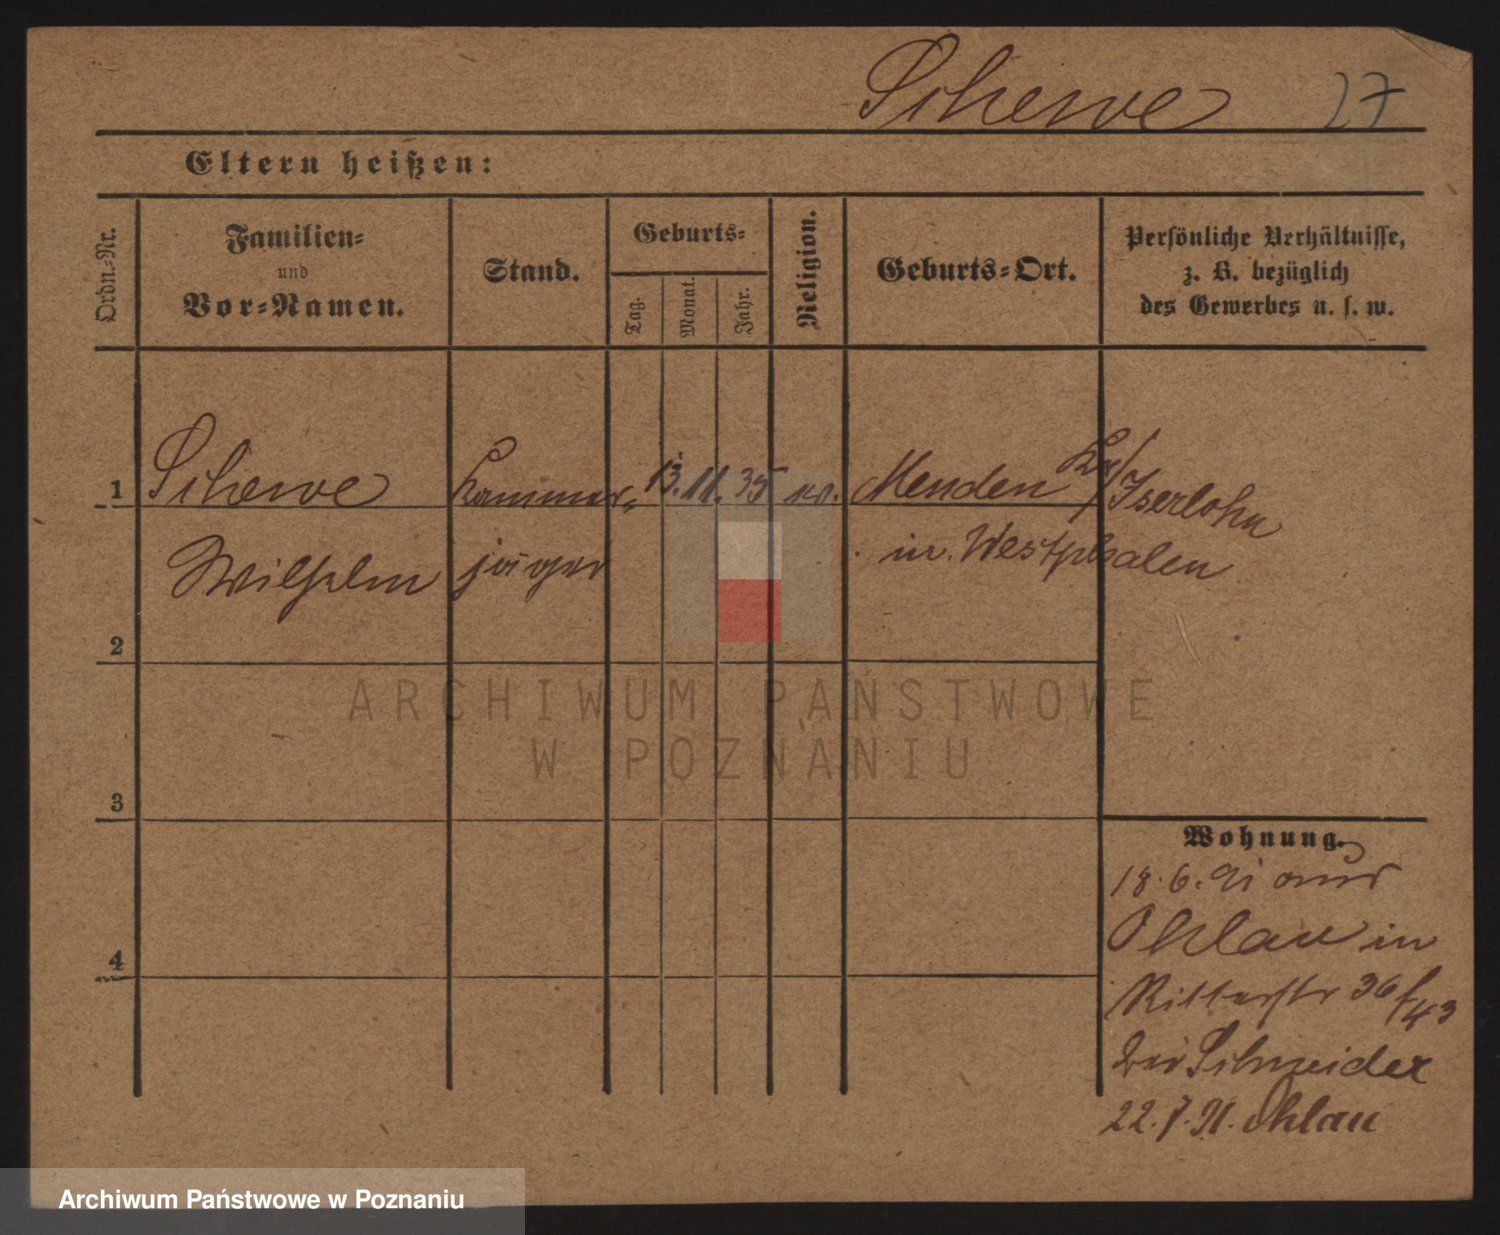 Schewe 27
Eltern heißen:
Ordn.-Nr.
Familien-
und
Vor-Namen.
Stand.
Geburts-
Tag.
Monat.
Jahr.
Religion.
Geburts-Ort.
Persönliche Verhältnisse,
z. B. bezüglich
des Gewerbes u. s. w.
1 Schewe Kammer- 13. 11. 35 Menden Kr/Iserlohn
Wilhelm jäger in Westphalen
2
ARCHIWUM PAŃSTWOWE
W POZNANIU
3
4
Wohnung.
18. 6. 91 aus
Ohlau in
Ritterstr 36/43
bei Schneider
22. 7. 91. Ohlau
Archiwum Państwowe w Poznaniu